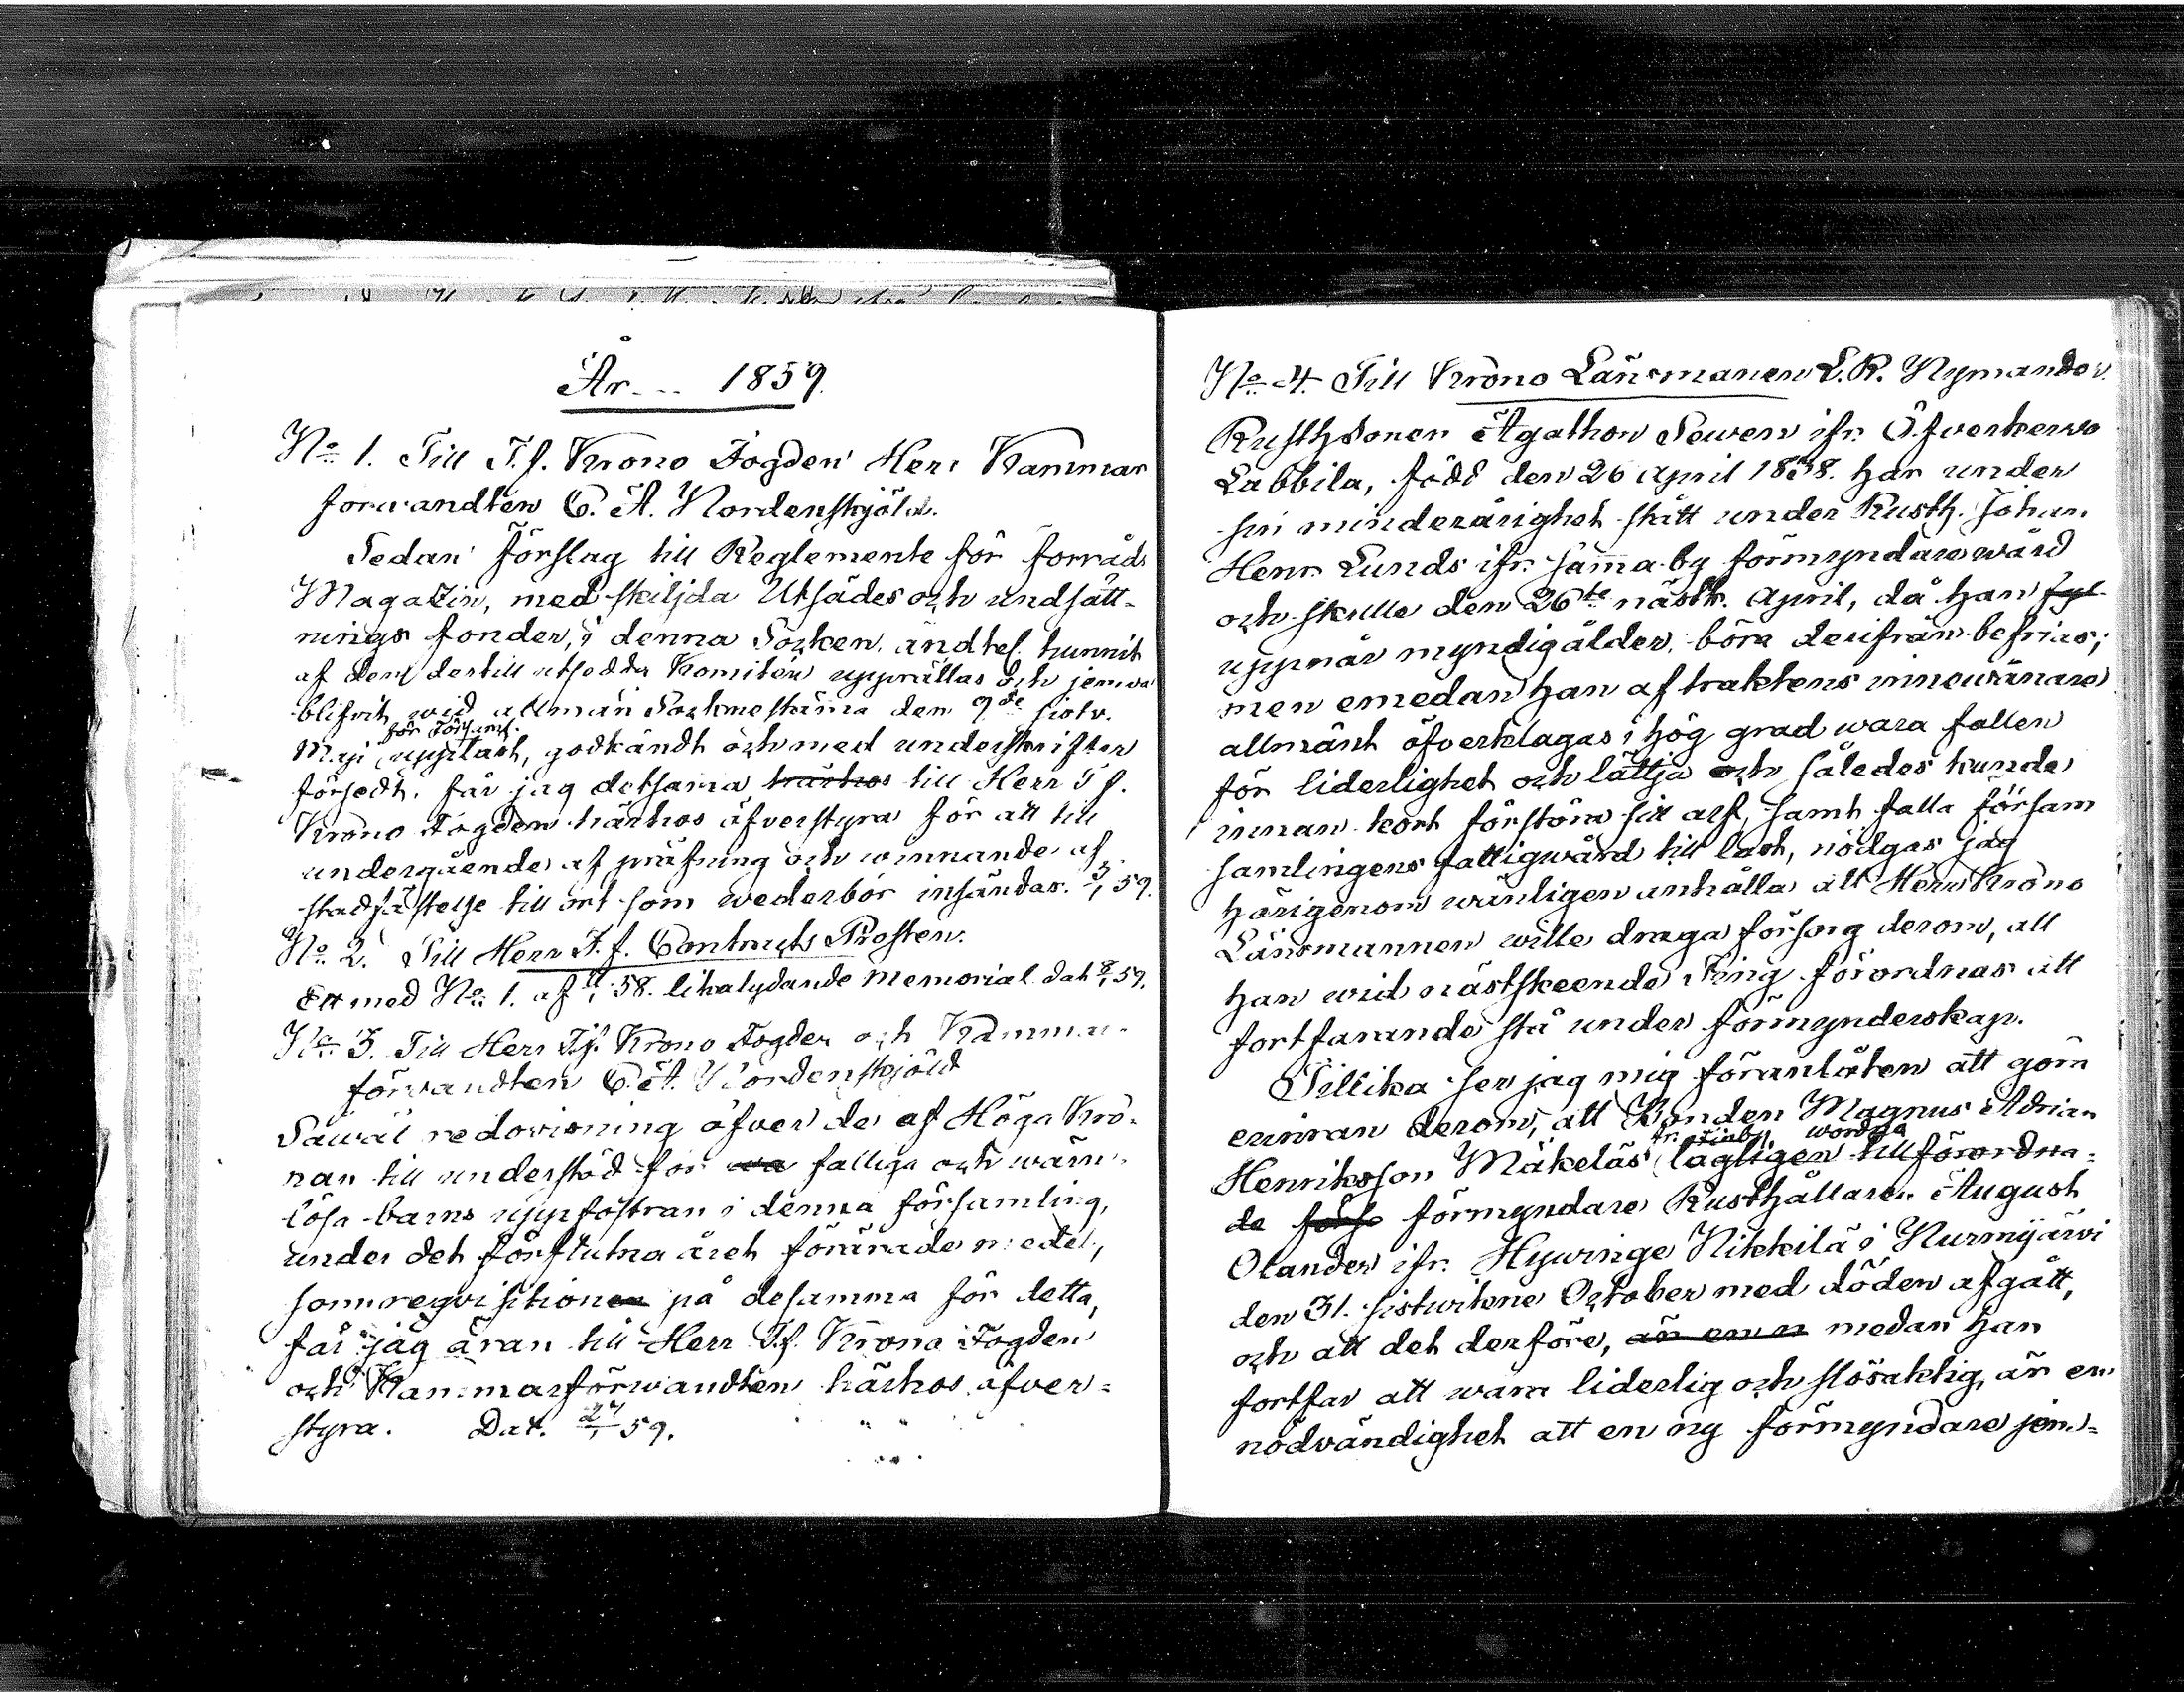 År 1859.
No 1. Till T.f. Krono Fogden Herr Kammar
förwandten C. A. Nordenskjöld.
Sedan förslag till Reglemente för förråds
Magazin, med skiljda Utsädes och undsätt-
nings fonder, i denna Socken, ändtel. hunnit
af den dertill utsedda Komitén upprättas och jemwäl
blifvit wid allmän Socknestämma den 9de sistv.
för Församl.
Maji uppläst, godkändt och med underskrifter
försedt, får jag detsamma härhos till Herr T.f.
Krono Fogden härhos öfverstyra för att till
undergående af pröfning och winnande af
stadfästelse till ort som wederbör insändas. 3/1 59.
No 2. Till Herr T.f. Contracts Prosten.
Ett med No 1. af /1 58. likalydande Memorial dat. 8/1 59.
No 3. Till Herr T.f. Krono Fogden och Kammar-
förwandten C. A. Nordenskjöld
Såwäl redovisning öfver de af Höga Kro-
nan till understöd för wa fattiga och wärn-
lösa barns uppfostran i denna församling,
under det förflutna året förärade medel,
som reqvisitionen på desamma för detta,
får jag äran till Herr T.f. Krono Fogden
och Kammarförwandten härhos öfver-
styra. Dat. 27/1 59.
No 4. Till Krono Länsmannen L. R. Nymander.
Rusthsonen Agathon Sewen ifr. Öfverkerwo
Labbila, född den 26 April 1838. har under
sin minderårighet stått under Rusth. Johan
Henr. Lunds ifr. samma by förmyndarewård
och skulle den 26te nästk. April, då han fyl
uppnår myndig ålder, böra derifrån befrias;
men emedan han af traktens innewånare
allmänt öfverklagas i hög grad wara fallen
för liderlighet och lättja och således kunde
innan kort förstöra sitt arf, samt falla församl
samlingens fattigwård till last, nödgas jag
härigenom wänligen anhålla att Herr Krono
Länsmannen wille draga försorg derom, att
han wid nästskeende Ting förordnas att
fortfarande stå under förmynderskap.
Tillika ser jag mig föranlåten att göra
erinran derom, att Bonden Magnus Adrian
wordna
Henriksson Mäkeläs lagligen till förordna-
de förs förmyndare Rusthållaren August
Olander ifr. Hywinge Nikkilä i Nurmijärvi
den 31. sistwikne October med döden afgått,
och att det derföre, är en n medan han
fortfar att wara liderlig och slösaktig, är en
nödvändighet att en ny förmyndare jem-